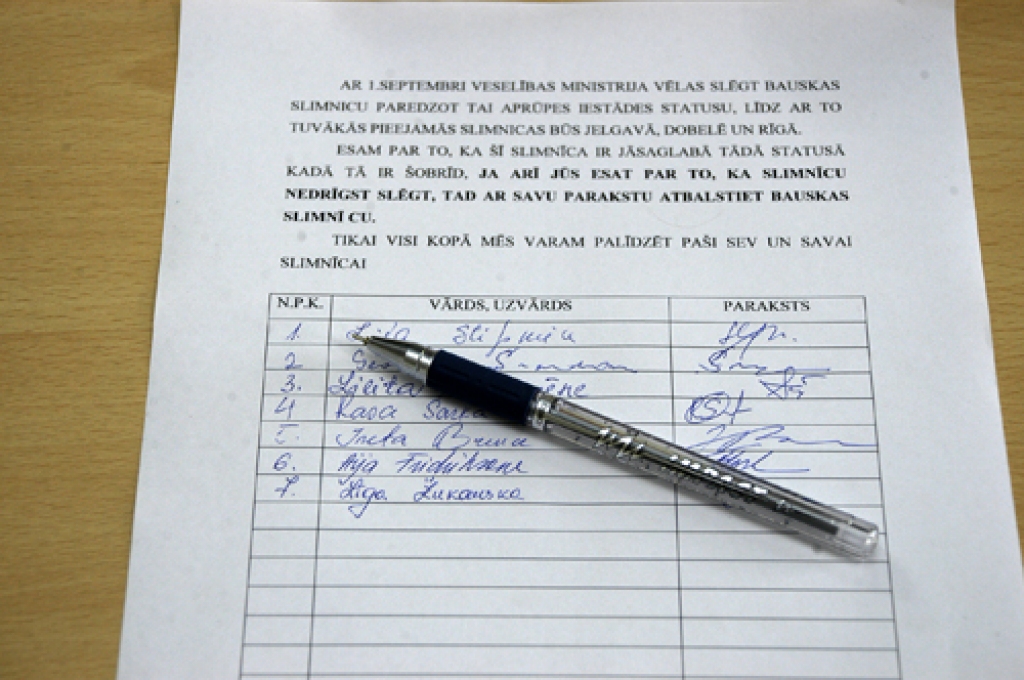 AR 1.SEPTEMBRI VESELĪBAS MINISTRIJA VĒLAS SLĒGT BAUSKAS
SLIMNICU PAREDZOT TAI APRŪPES IESTĀDES STATUSU, LĪDZ AR TO
TUVĀKĀS PIEEJAMĀS SLIMNICAS BŪS JELGAVĀ, DOBELĒ UN RĪGĀ.
ESAM PAR TO, KA ŠĪ SLIMNĪCA IR JĀSAGLABĀ TĀDĀ STATUSĀ
KADĀ TĀ IR ŠOBRĪD, JA ARĪ JŪS ESAT PAR TO, KA SLIMNĪCU
NEDRĪGST SLĒGT, TAD AR SAVU PARAKSTU ATBALSTIET BAUSKAS
SLIMNĪ CU.
TIKAI VISI KOPĀ MĒS VARAM PALĪDZĒT PAŠI SEV UN SAVAI
SLIMNĪCAI
N.P.K. VĀRDS, UZVĀRDS PARAKSTS
1.
2
3. Lilita
4 Rasa
Ineta
6. Aija
7. Līga